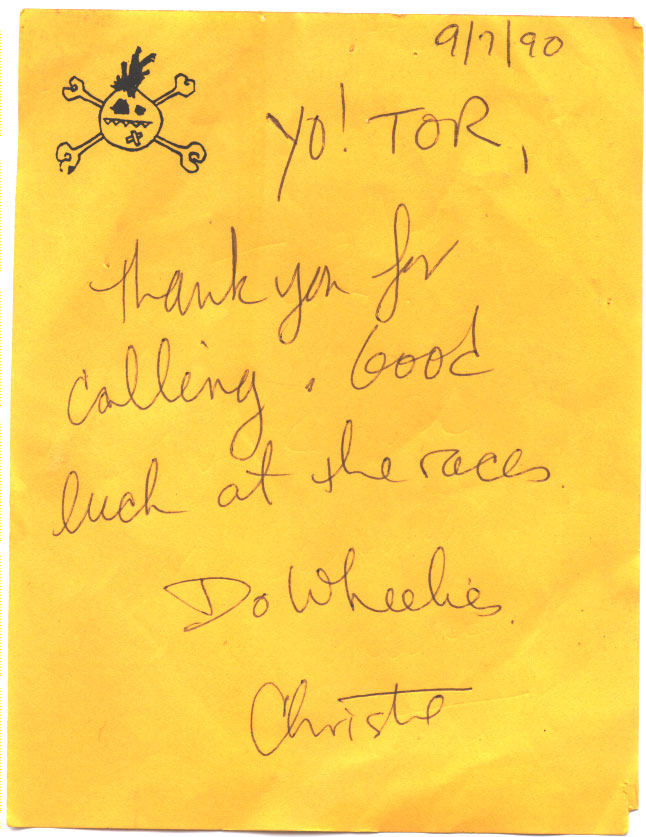 9/7/90
Yo! TOR,
Thank you for
calling. Good
luck at the races.
Do Wheelies.
Christie